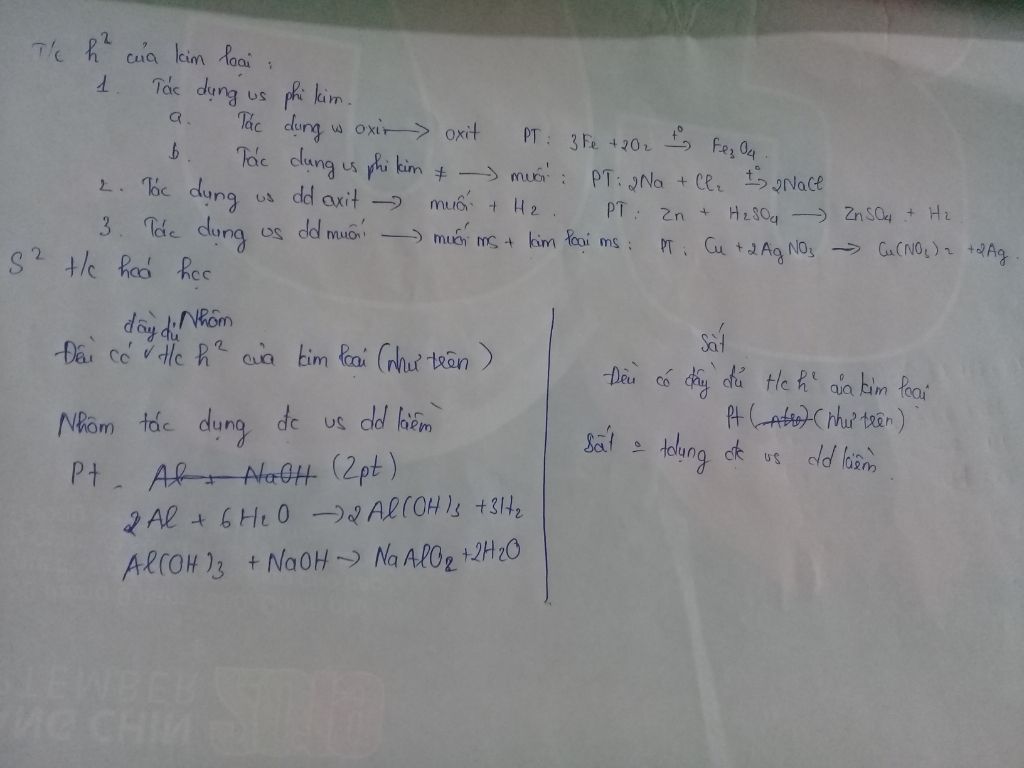 T/c h² của kim loại :
1. Tác dụng vs phi kim.
a. Tác dụng vs oxi → oxit PT: 3Fe + 2O₂ →(t°) Fe₃O₄.
b. Tác dụng vs phi kim ≠ → muối : PT: 2Na + Cl₂ →(t°) 2NaCl
2. Tác dụng vs dd axit → muối + H₂. PT: Zn + H₂SO₄ → ZnSO₄ + H₂
3. Tác dụng vs dd muối → muối ms + kim loại ms : PT: Cu + 2AgNO₃ → Cu(NO₃)₂ + 2Ag.
S² t/c hoá học
Nhôm
Đều có đầy đủ t/c h² của kim loại (như trên)
Nhôm tác dụng đc vs dd kiềm
Pt - Al + NaOH (2pt)
2Al + 6H₂O → 2Al(OH)₃ + 3H₂
Al(OH)₃ + NaOH → NaAlO₂ + 2H₂O
Sắt
Đều có đầy đủ t/c h² của kim loại
Pt (như trên)
Sắt tdụng đc vs dd kiềm
TEMBER
NG CHIN